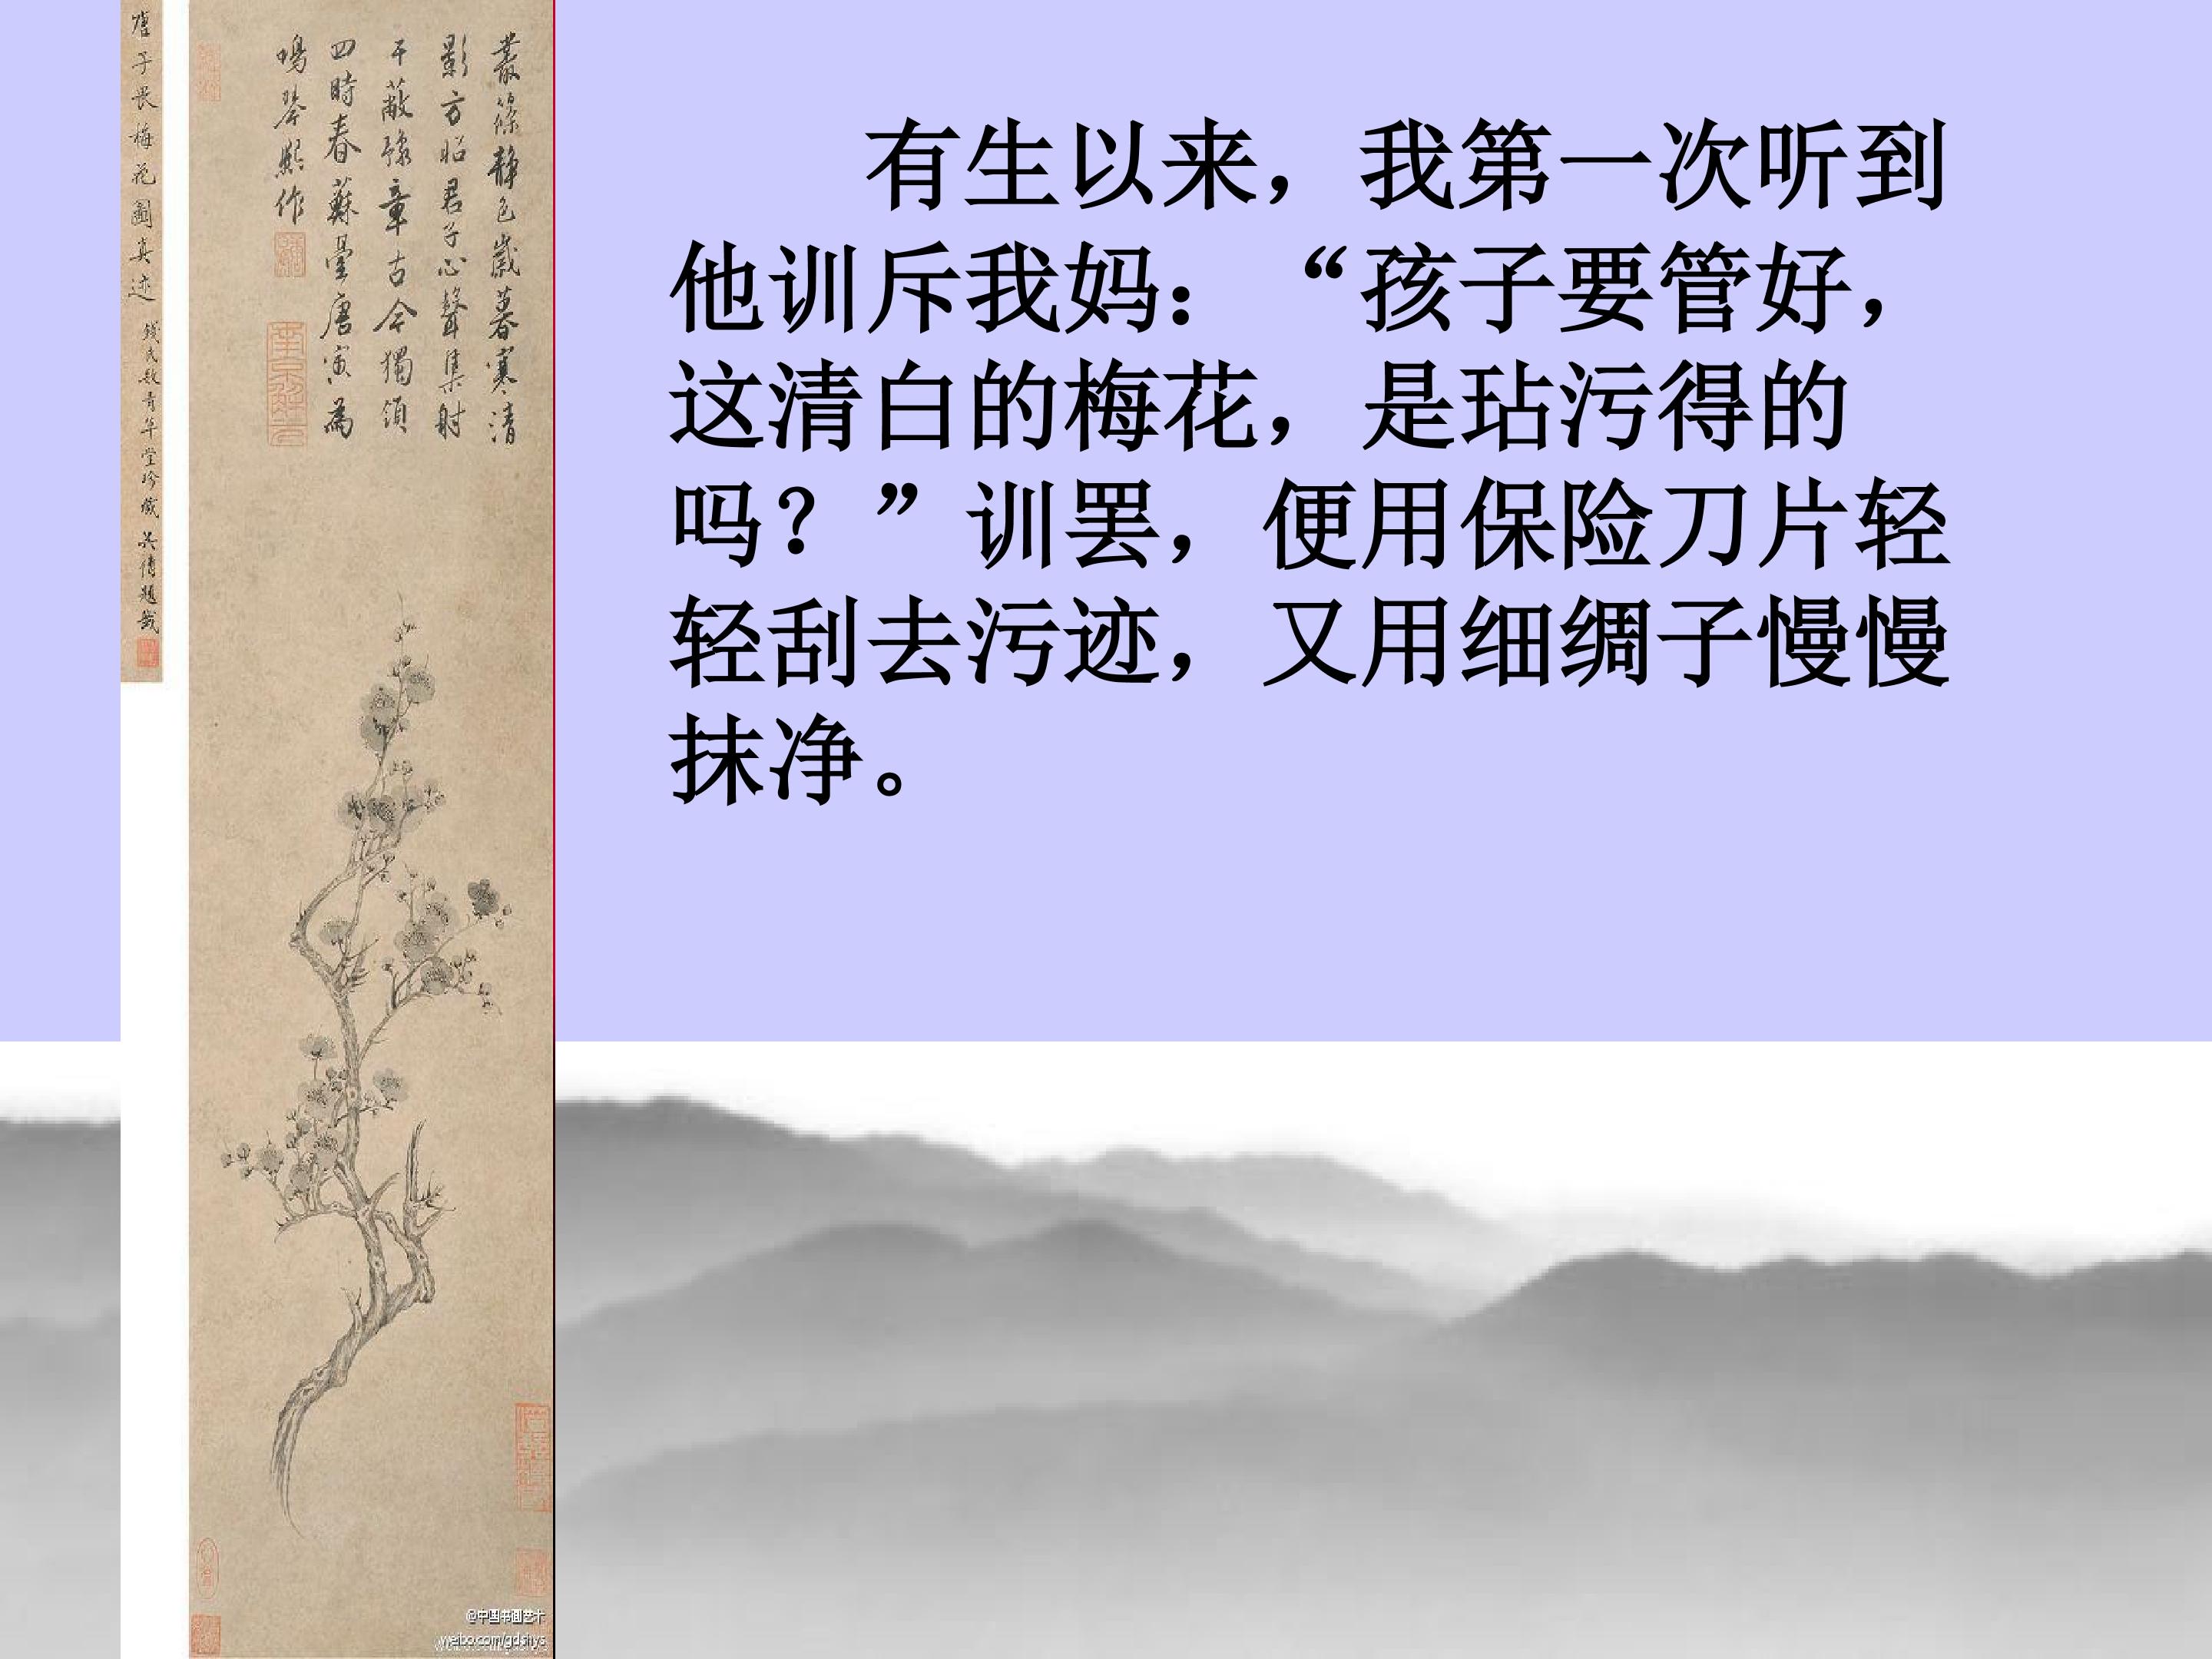 唐子畏梅花圖真迹
錢氏數青草堂珍藏 吳倩題籤
叢篠静色歲暮寒清
影方昭君子心聲集射
干蔽豫章古今獨領
四時春蘇臺唐寅為
鳴琴熙作
有生以来，我第一次听到
他训斥我妈：“孩子要管好，
这清白的梅花，是玷污得的
吗？”训罢，便用保险刀片轻
轻刮去污迹，又用细绸子慢慢
抹净。
@中国书画艺术
weibo.com/gdshys